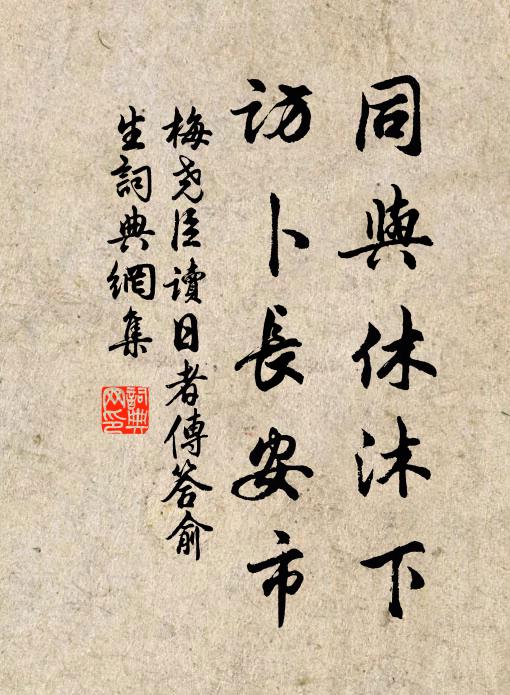 同與休沐下
訪卜長安市
梅堯臣讀日者傳答俞
生詞典網集
詞典
网印